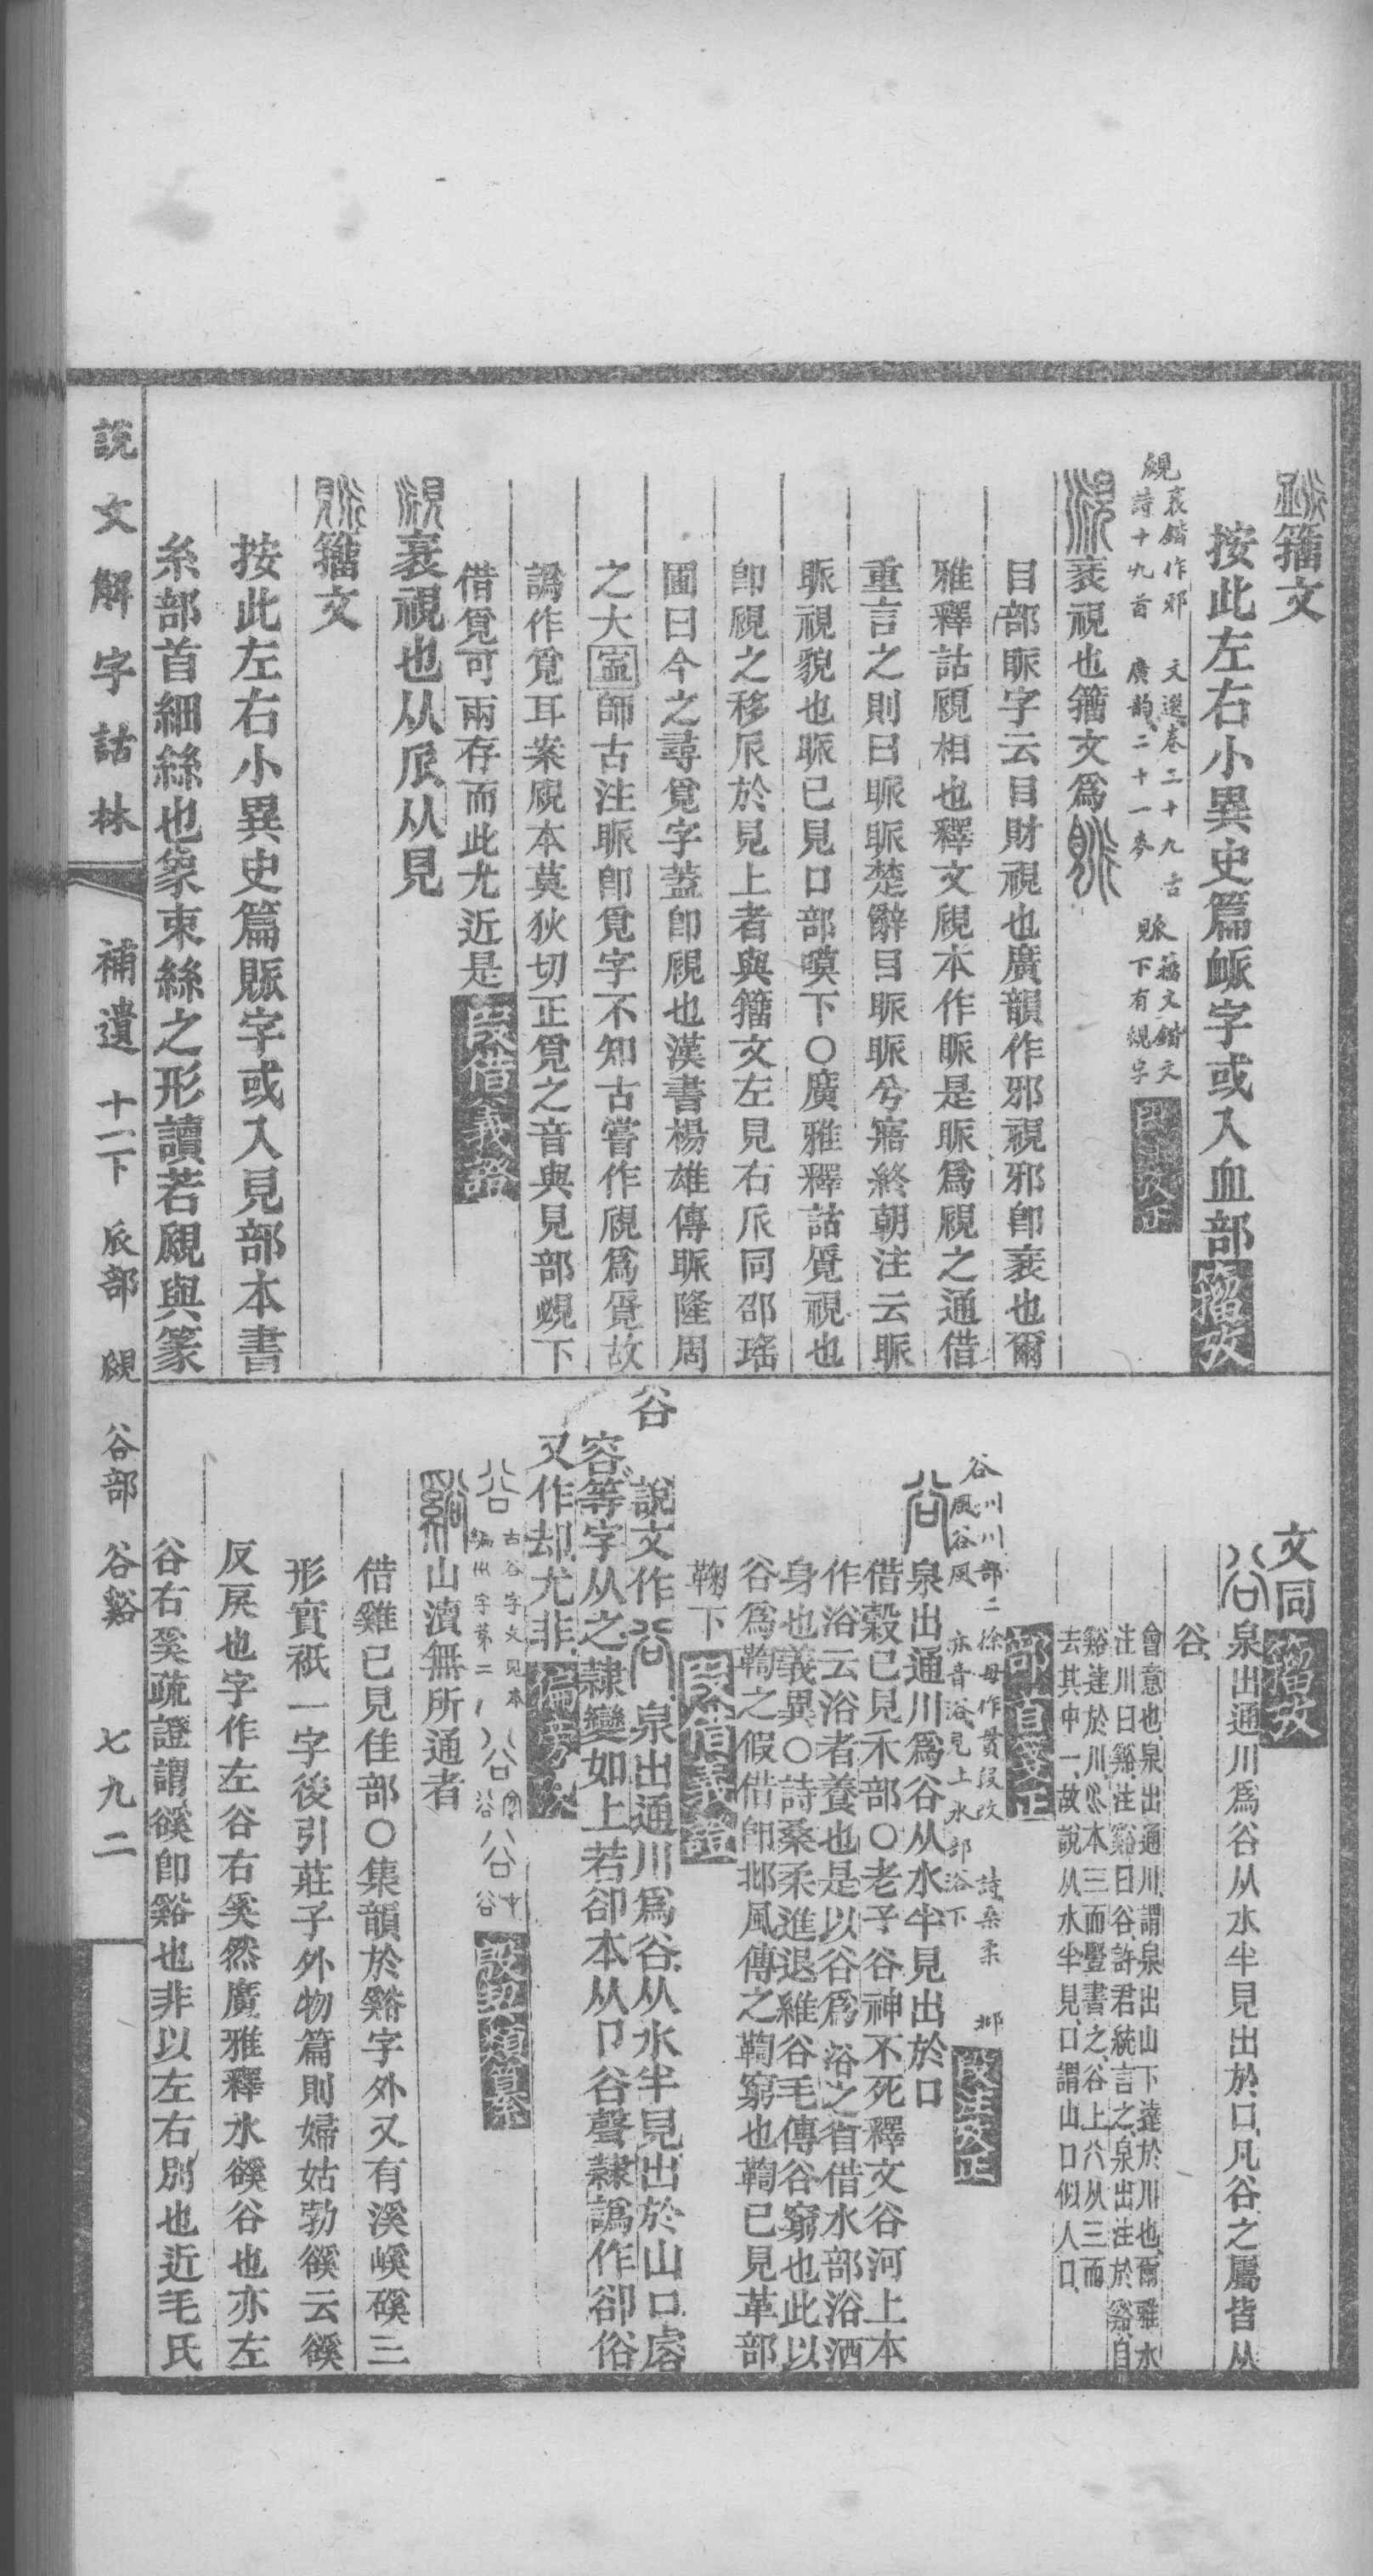 籒文
按此左右小異史篇衇字或入血部
覛 衺鍇作邪 文選卷二十九古
詩十九首 廣韵二十一麥 𧠟籒文鍇文
見下有䙾字
衺視也籒文爲
目部眽字云目財視也廣韻作邪視邪卽衺也爾
雅釋詁覛相也釋文覛本作眽是眽爲覛之通借
重言之則曰眽眽楚辭目眽眽兮寤終朝注云眽
眽視貌也眽已見口部嗼下○廣雅釋詁覓視也
卽覛之移𠂢於見上者與籒文左見右𠂢同邵瑤
圃曰今之尋覓字蓋卽覛也漢書楊雄傳眽隆周
之大寍師古注眽卽覓字不知古嘗作覛爲覓故
譌作覓耳案覛本莫狄切正覓之音與見部䙾下
借覓可兩存而此尤近是
衺視也从𠂢从見
籒文
按此左右小異史篇𧠟字或入見部本書
糸部首細絲也象束絲之形讀若覛與篆
文同
泉出通川爲谷从水半見出於口凡谷之屬皆从
谷
會意也泉出通川謂泉出山下達於川也爾雅水
注川曰谿注谿曰谷許君統言之泉出注於谿自
谿達於川 本三而豎書之谷上 从三而
去其中一故說从水半見口謂山口似人口
部首訂正
谷 川川部二徐毋作貫段改 詩桑柔 邶
谷風谷風 亦音浴見上水部浴下
泉出通川爲谷从水半見出於口
借穀已見禾部○老子谷神不死釋文谷河上本
作浴云浴者養也是以谷爲浴之省借水部浴洒
身也義異○詩桑柔進退維谷毛傳谷窮也此以
谷爲鞫之假借卽邶風傳之鞫窮也鞫已見革部
鞠下
谷
說文作 泉出通川爲谷从水半見出於山口㕡
容等字从之隷變如上若卻本从卩谷聲隷譌作郤俗
又作却尤非
古谷字文見本
編卅字第二 谷 谷
山瀆無所通者
借雞已見隹部○集韻於谿字外又有溪嵠磎三
形實祇一字後引莊子外物篇則婦姑勃豀云豀
反戾也字作左谷右奚然廣雅釋水豀谷也亦左
谷右奚疏證謂豀卽谿也非以左右別也近毛氏
說文解字詁林 補遺 十一下 𠂢部 覛 谷部 谷谿 七九二